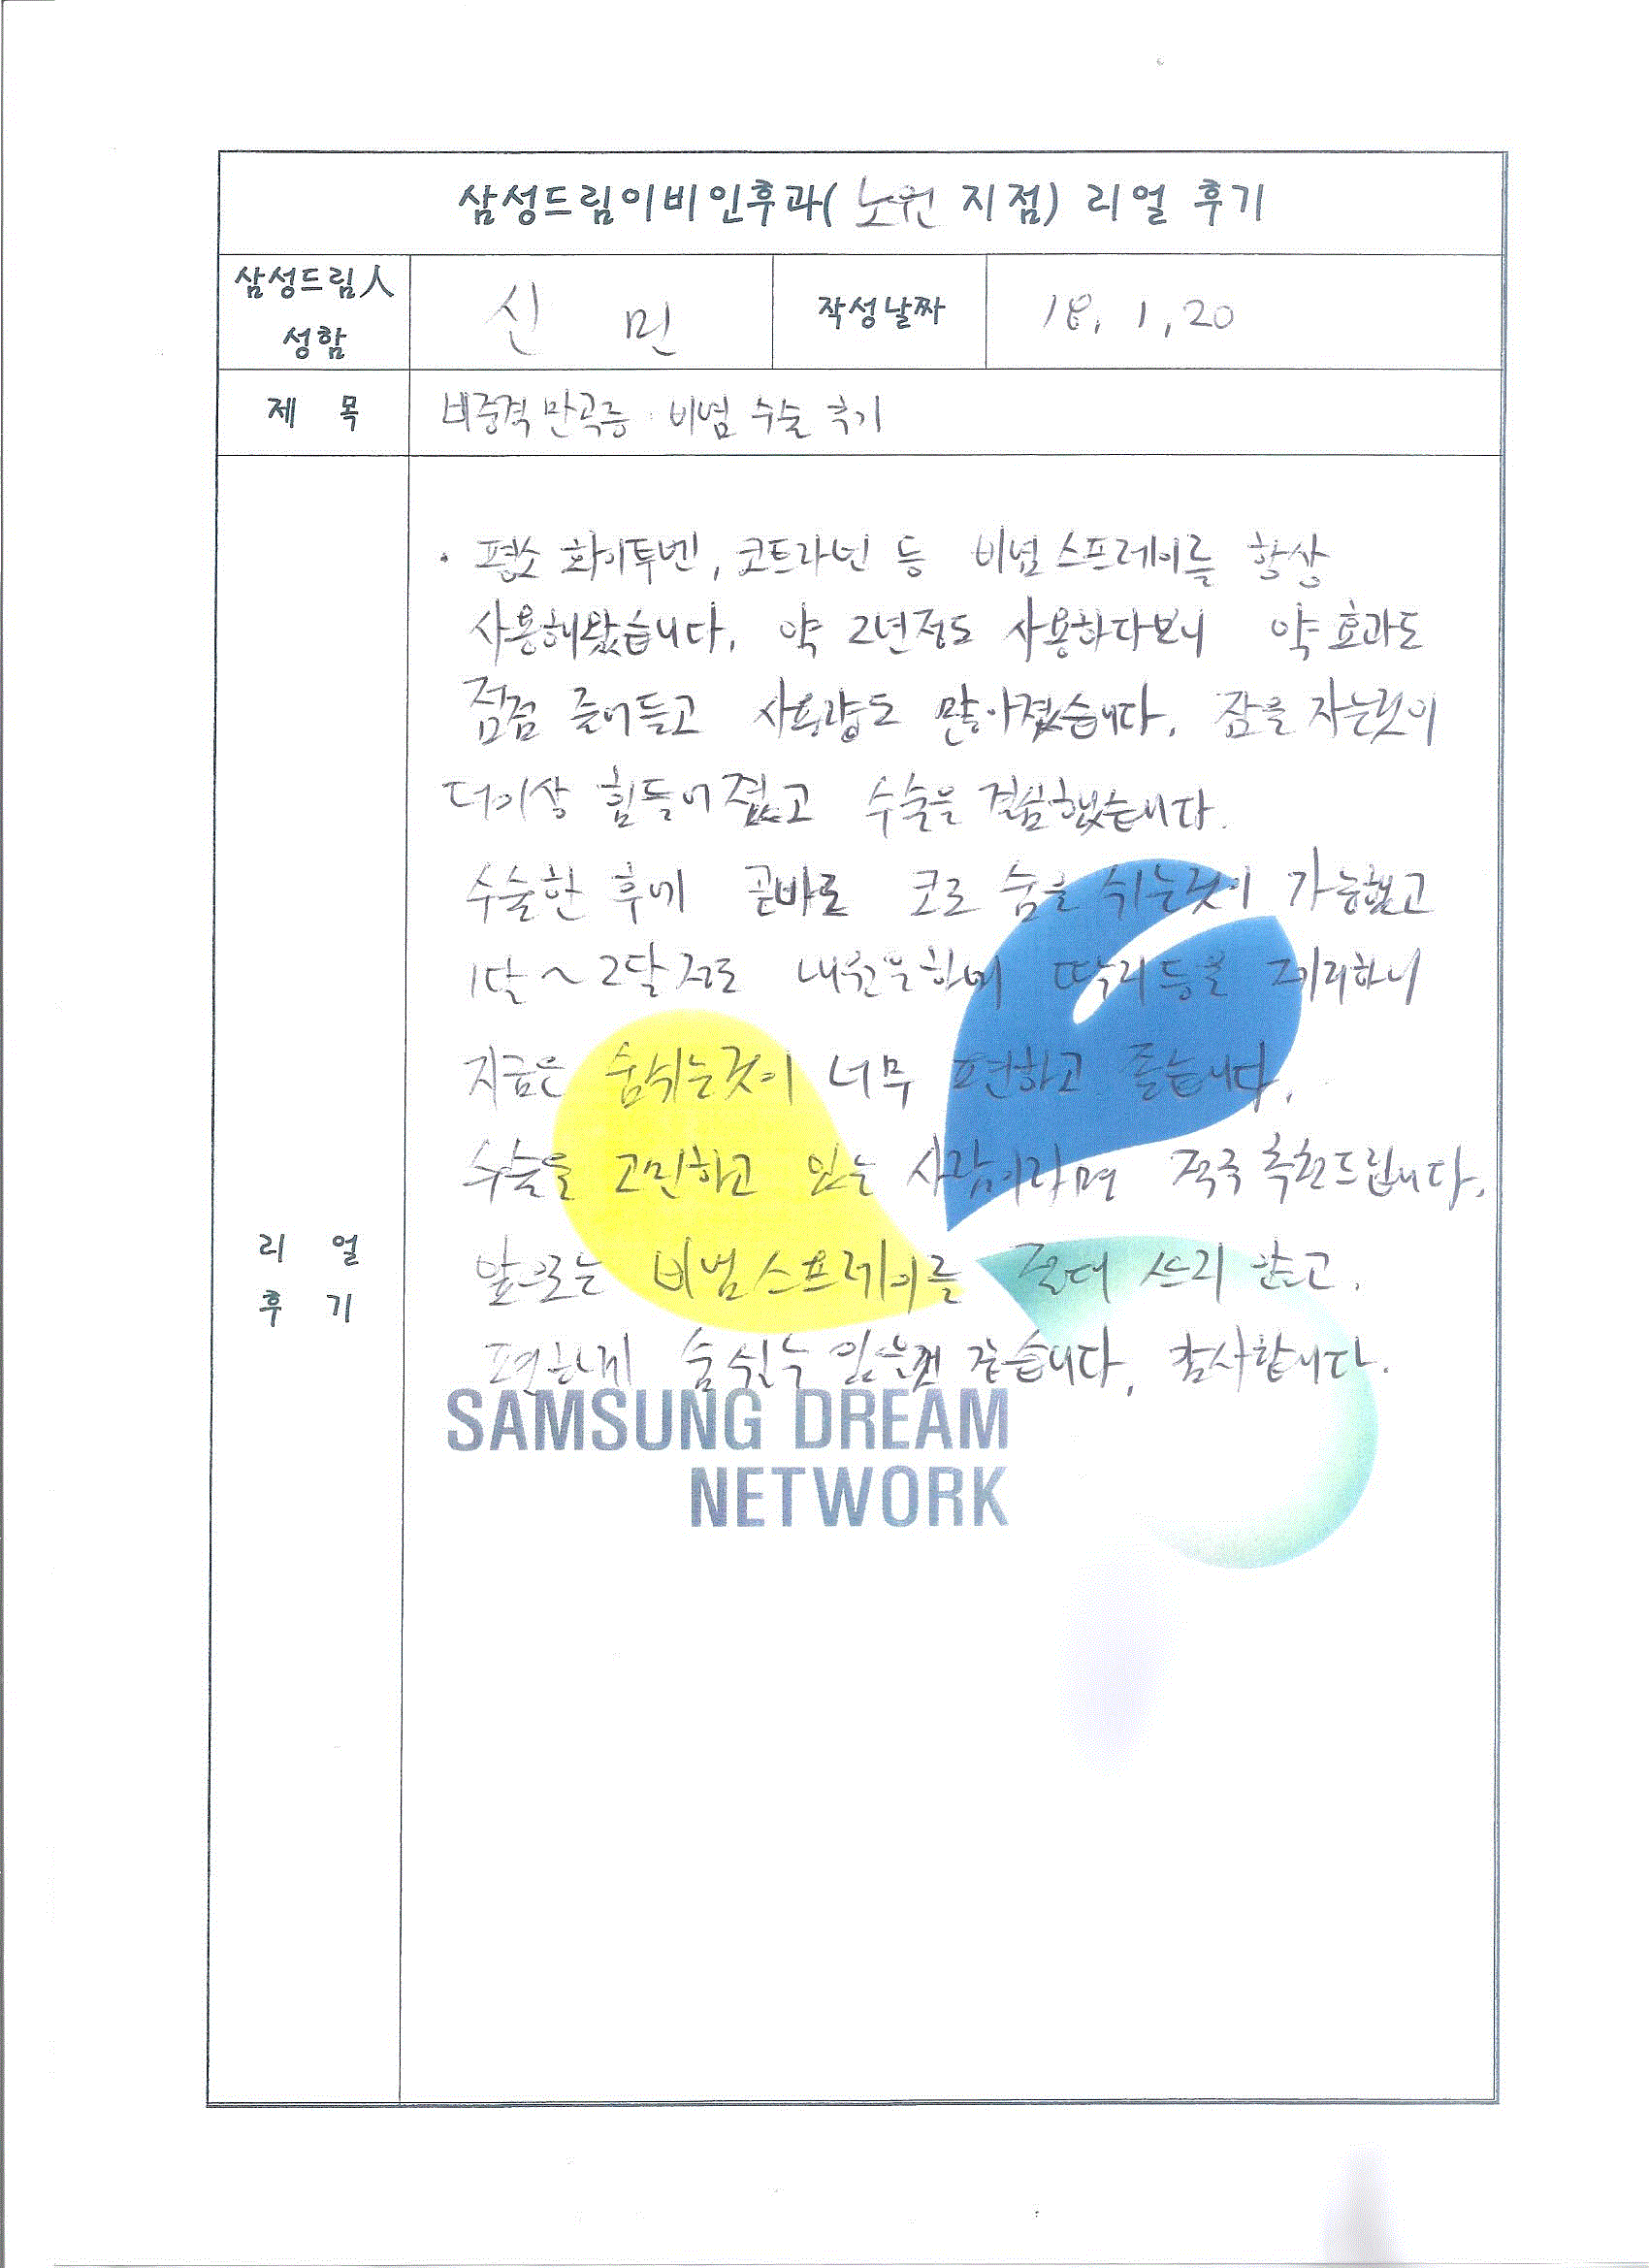 삼성드림이비인후과( 노원 지점) 리얼 후기
삼성드림人 성함
신 민
작성날짜
18. 1. 20
제 목
비중격 만곡증 · 비염 수술 후기
리 얼 후 기
· 평소 화이투벤, 코트라닌 등 비염스프레이를 항상
사용해왔습니다. 약 2년정도 사용하다보니 약효과도
점점 줄어들고 사용량도 많아졌습니다. 잠을 자는것이
더이상 힘들어졌고 수술을 결심했습니다.
수술한 후에 곧바로 코로 숨을 쉬는것이 가능했고
1달~2달정도 내원을하며 딱지등을 제거하니
지금은 숨쉬는것이 너무 편하고 좋습니다.
수술을 고민하고 있는 사람이라면 적극추천드립니다.
앞으로는 비염스프레이를 절대 쓰지 않고,
편하게 숨쉴수 있을것 같습니다. 감사합니다.
SAMSUNG DREAM
NETWORK